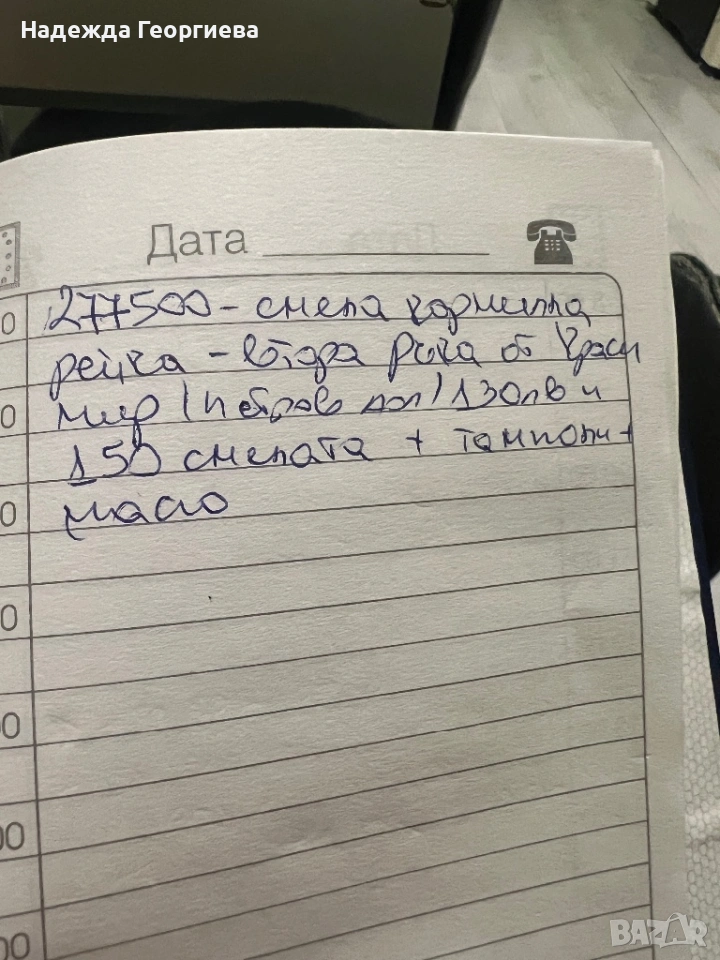 Надежда Георгиева
Дата
277500 - смяна кормилна
рейка - втора ръка от Краси
мир (Петров дол) 130лв и
150 смяната + тампони +
масло
0
0
0
0
00
00
00
BAZAR